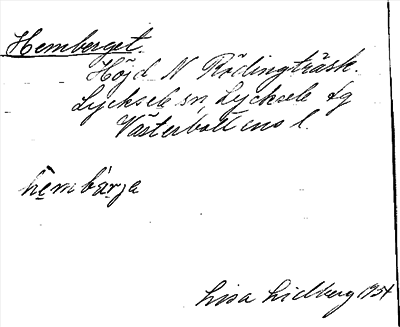 Hemberget.
Höjd N Rödingträsk.
Lycksele sn, Lycksele lg
Västerbottens l.
hembärja
Lisa Lidberg 1954